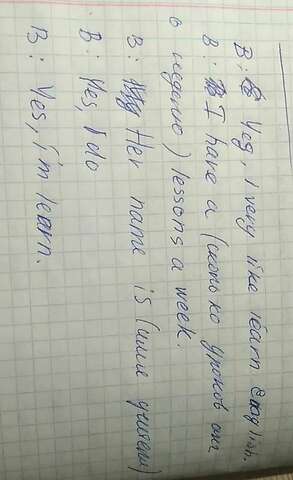 B: Yes, I very like learn English.
B: I have a (сколько уроков англ
в неделю) lessons a week.
B: Her name is (имя учителя)
B: Yes, I do
B: Yes, i'm learn.